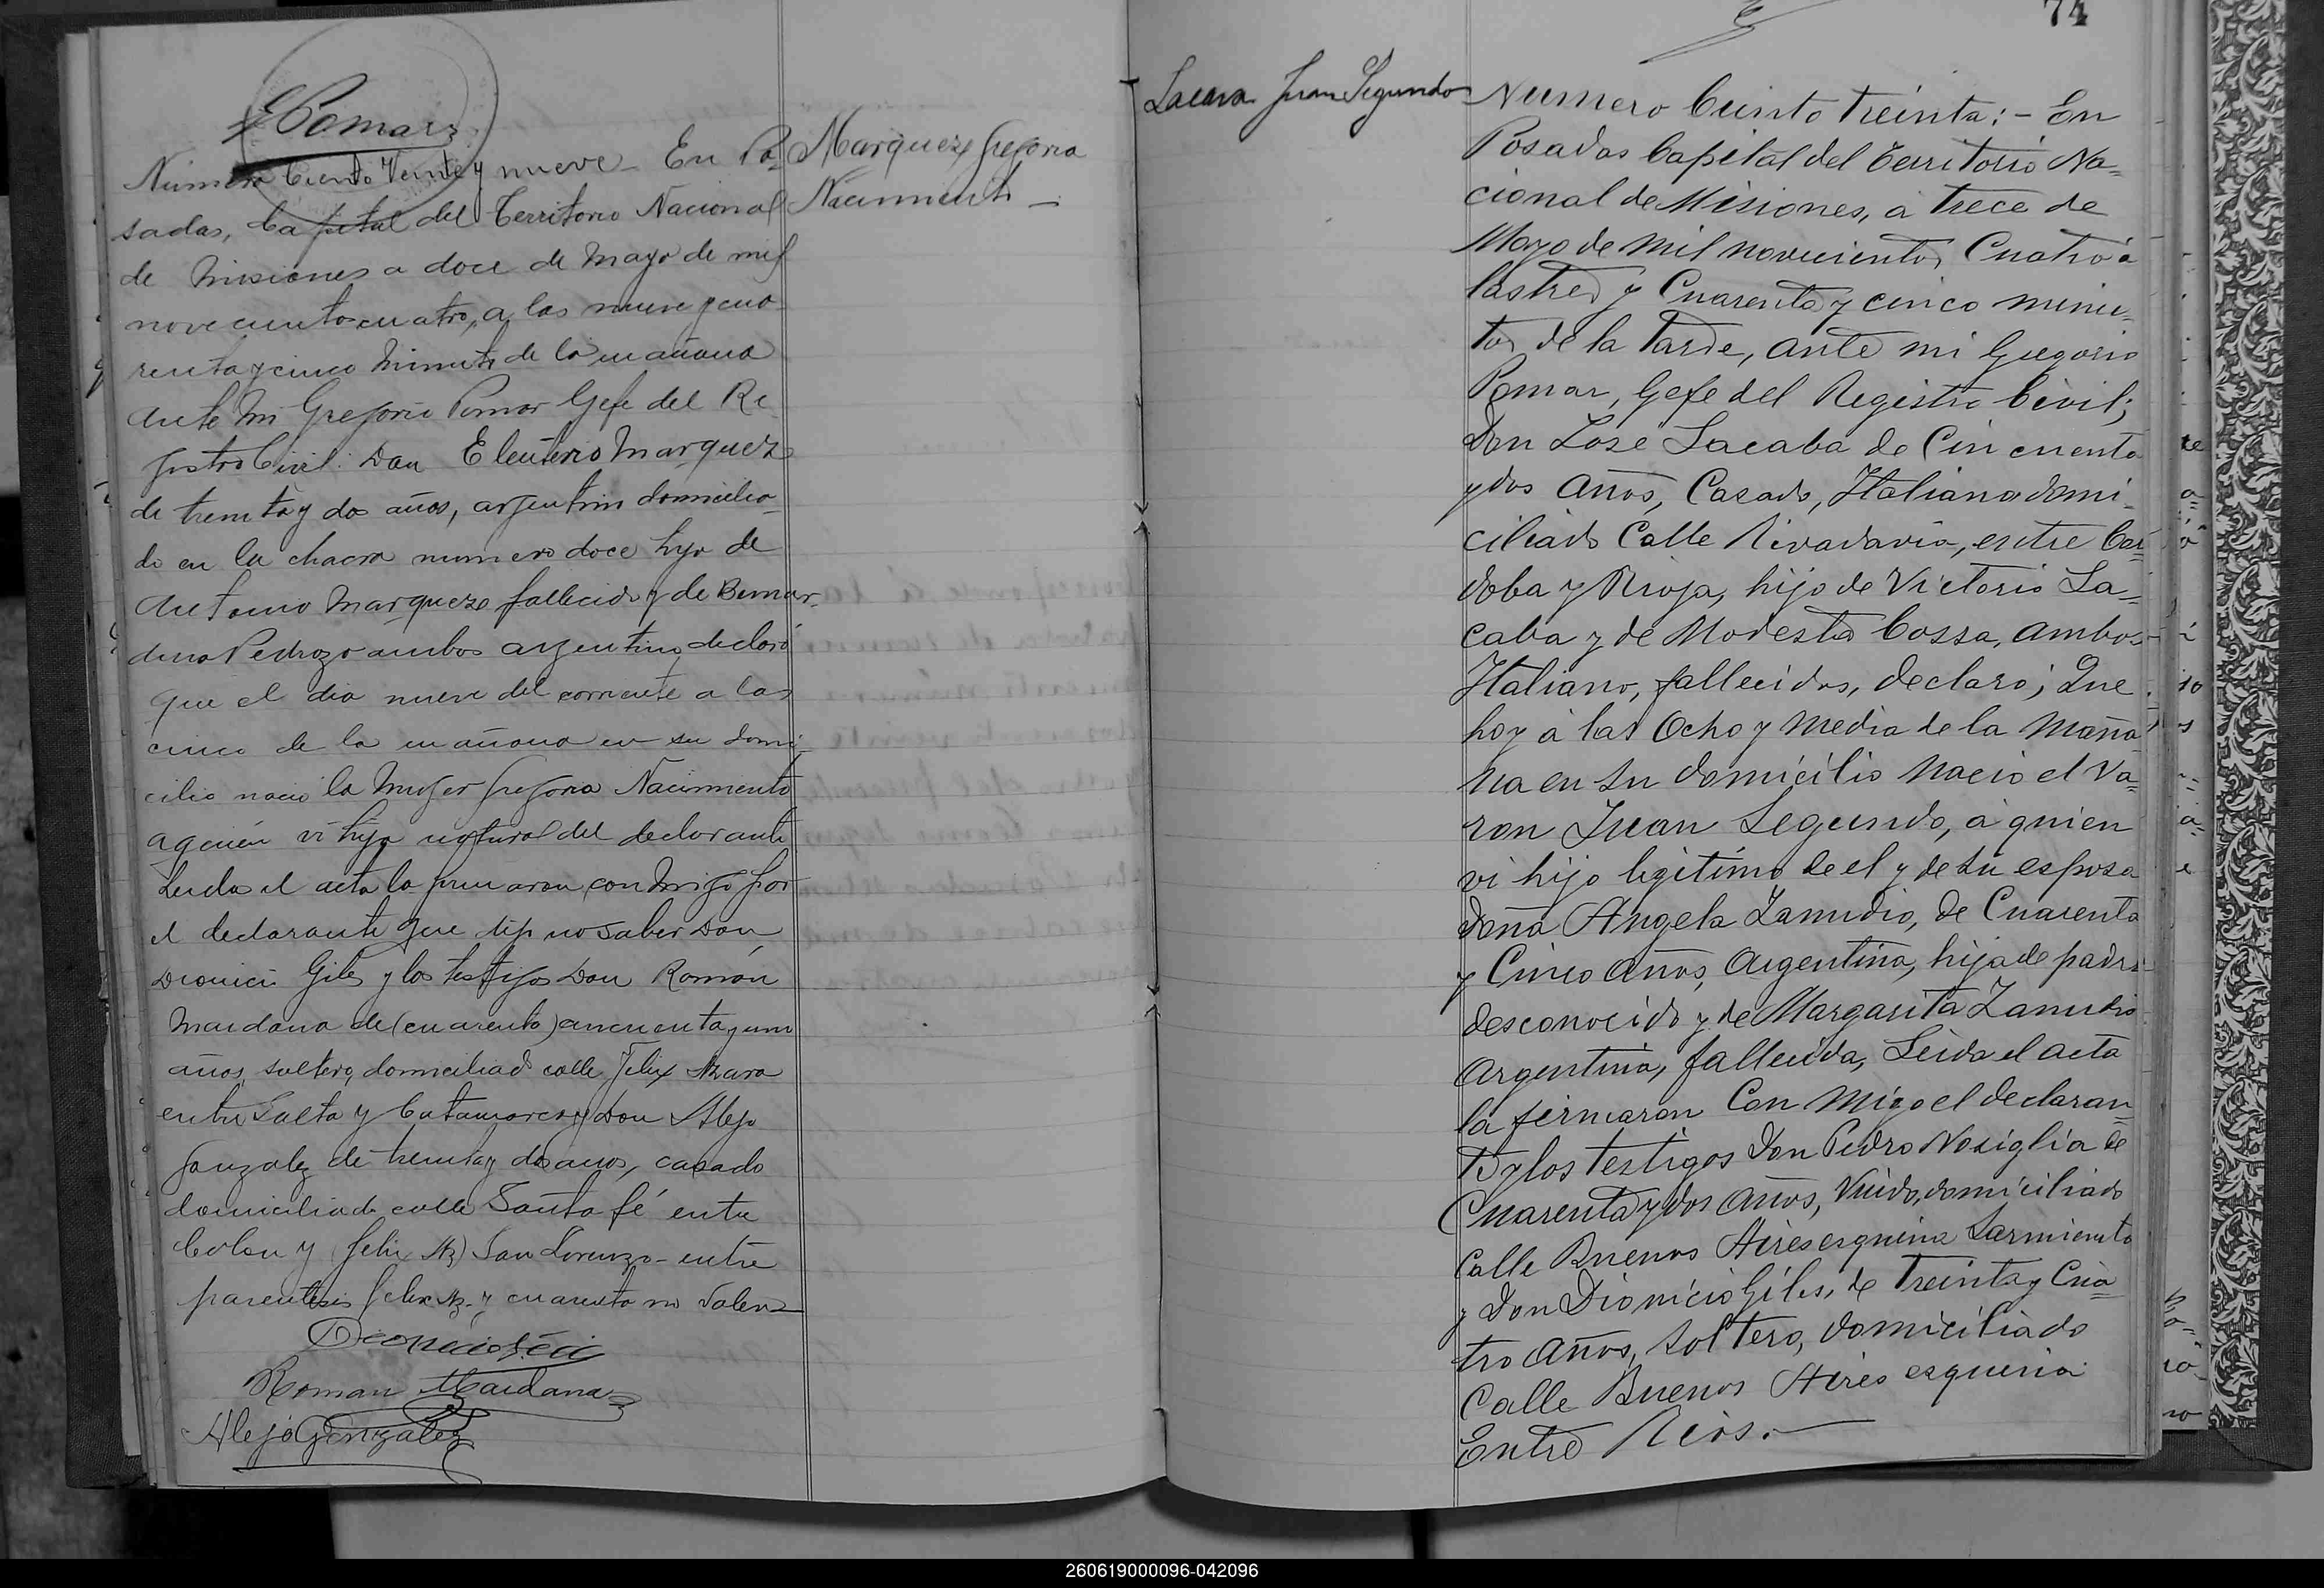 GPomar
Numero Ciento Veinte y nueve - En Po
sadas, Capital del Territorio Nacional
de Misiones a doce de Mayo de mil
novecientos cuatro, a las nueve y cua
renta y cinco minutos de la mañana
Ante Mi Gregorio Pomar Gefe del Re
jistro Civil: Don Eleuterio Marquez
de treinta y dos años, argentino domicilia-
do en la chacra numero doce hijo de
Antonio Marquez fallecido y de Bernar-
dina Pedrozo ambos argentinos, declaró
que el dia nueve del corriente a las
cinco de la mañana en su domi-
cilio nació la Mujer Gregoria Nacimiento
a quien vi hija natural del declarante
Leida el acta la firmaron con Migo por
el declarante que dijo no saber Don
Dionicio Giles y los testigos Don Román
Maidana de (cuarenta) cincuenta y un
años, soltero, domiciliado calle Felix Azara
entre Salta y Catamarca y Don Alejo
Gonzalez de treinta y dos años, casado
domiciliado calle Santa fé entre
Colon y (felix Az) San Lorenzo - entre
parentesis felix Az. y cuarenta no valen
Roman Maidana
Alejo Gonzalez
Marquez Gregoria
Nacimiento -
74
Lacava Juan Segundo
Numero Ciento treinta: - En
Posadas Capital del Territorio Na=
cional de Misiones, à trece de
Mayo de mil novecientos Cuatro à
las tres y Cuarenta y cinco minu=
tos de la tarde, ante mi Gregorio
Pomar, Gefe del Registro Civil;
Don José Lacaba de Cincuenta
y dos años, Casado, Italiano domi-
ciliado Calle Rivadavia, entre Cor=
doba y Rioja, hijo de Victorio La=
caba y de Modesta Cossa, ambos
Italiano, fallecidos, declaró; Que
hoy à las Ocho y media de la Maña
na en su domicilio nació el Va=
ron Juan Segundo, à quien
vi hijo legitimo de el y de su esposa
doña Angela Zamudio, de Cuarenta
y Cinco años, Argentina, hija de padre
desconocido y de Margarita Zamudio
Argentina, fallecida, Leida el acta
la firmaron Con Migo el declaran=
te y los testigos Don Pedro Nosiglia de
Cuarenta y dos años, Viudo, domiciliado
Calle Buenos Aires esquina Sarmiento
y Don Dionicio Giles, de treinta y Cua=
tro años, soltero, domiciliado
Calle Buenos Aires esquina
Entre Rios. -
260619000096-042096